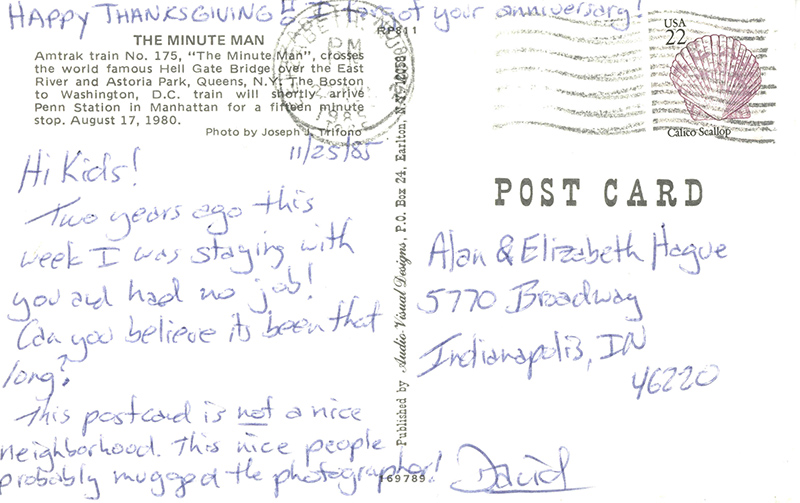 HAPPY THANKSGIVING!! I forgot your anniversary!
THE MINUTE MAN
Amtrak train No. 175, "The Minute Man", crosses
the world famous Hell Gate Bridge over the East
River and Astoria Park, Queens, N.Y. The Boston
to Washington, D.C. train will shortly arrive
Penn Station in Manhattan for a fifteen minute
stop. August 17, 1980.
Photo by Joseph J. Trifono
11/25/85
Hi Kids!
Two years ago this
week I was staying with
you and had no job!
Can you believe its been that
long?
This postcard is not a nice
neighborhood. This nice people
probably mugged the photographer!
David
RP811
Published by Audio Visual Designs, P.O. Box 24, Earlton, N.Y. 12058
169789
PM
1985
USA
22
Calico Scallop
POST CARD
Alan & Elizabeth Hague
5770 Broadway
Indianapolis, IN
46220